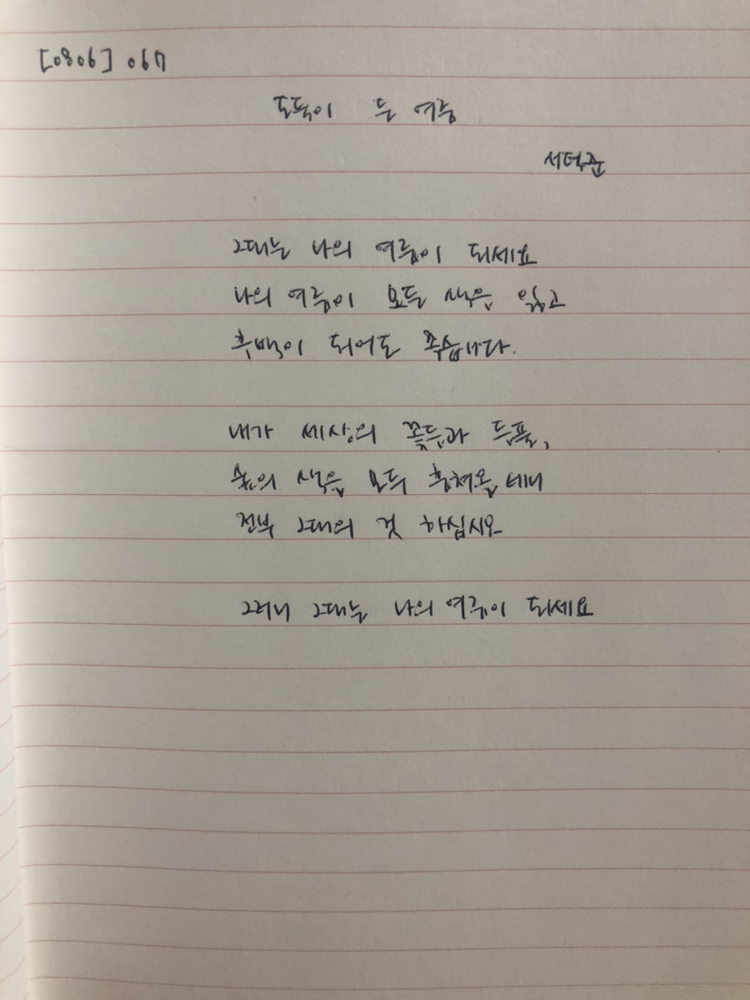 [0806] 067
도둑이 든 여름
서덕준
그대는 나의 여름이 되세요
나의 여름이 모든 색을 잃고
흑백이 되어도 좋습니다.
내가 세상의 꽃들과 들풀,
숲의 색을 모두 훔쳐올 테니
전부 그대의 것 하십시오
그러니 그대는 나의 여름이 되세요